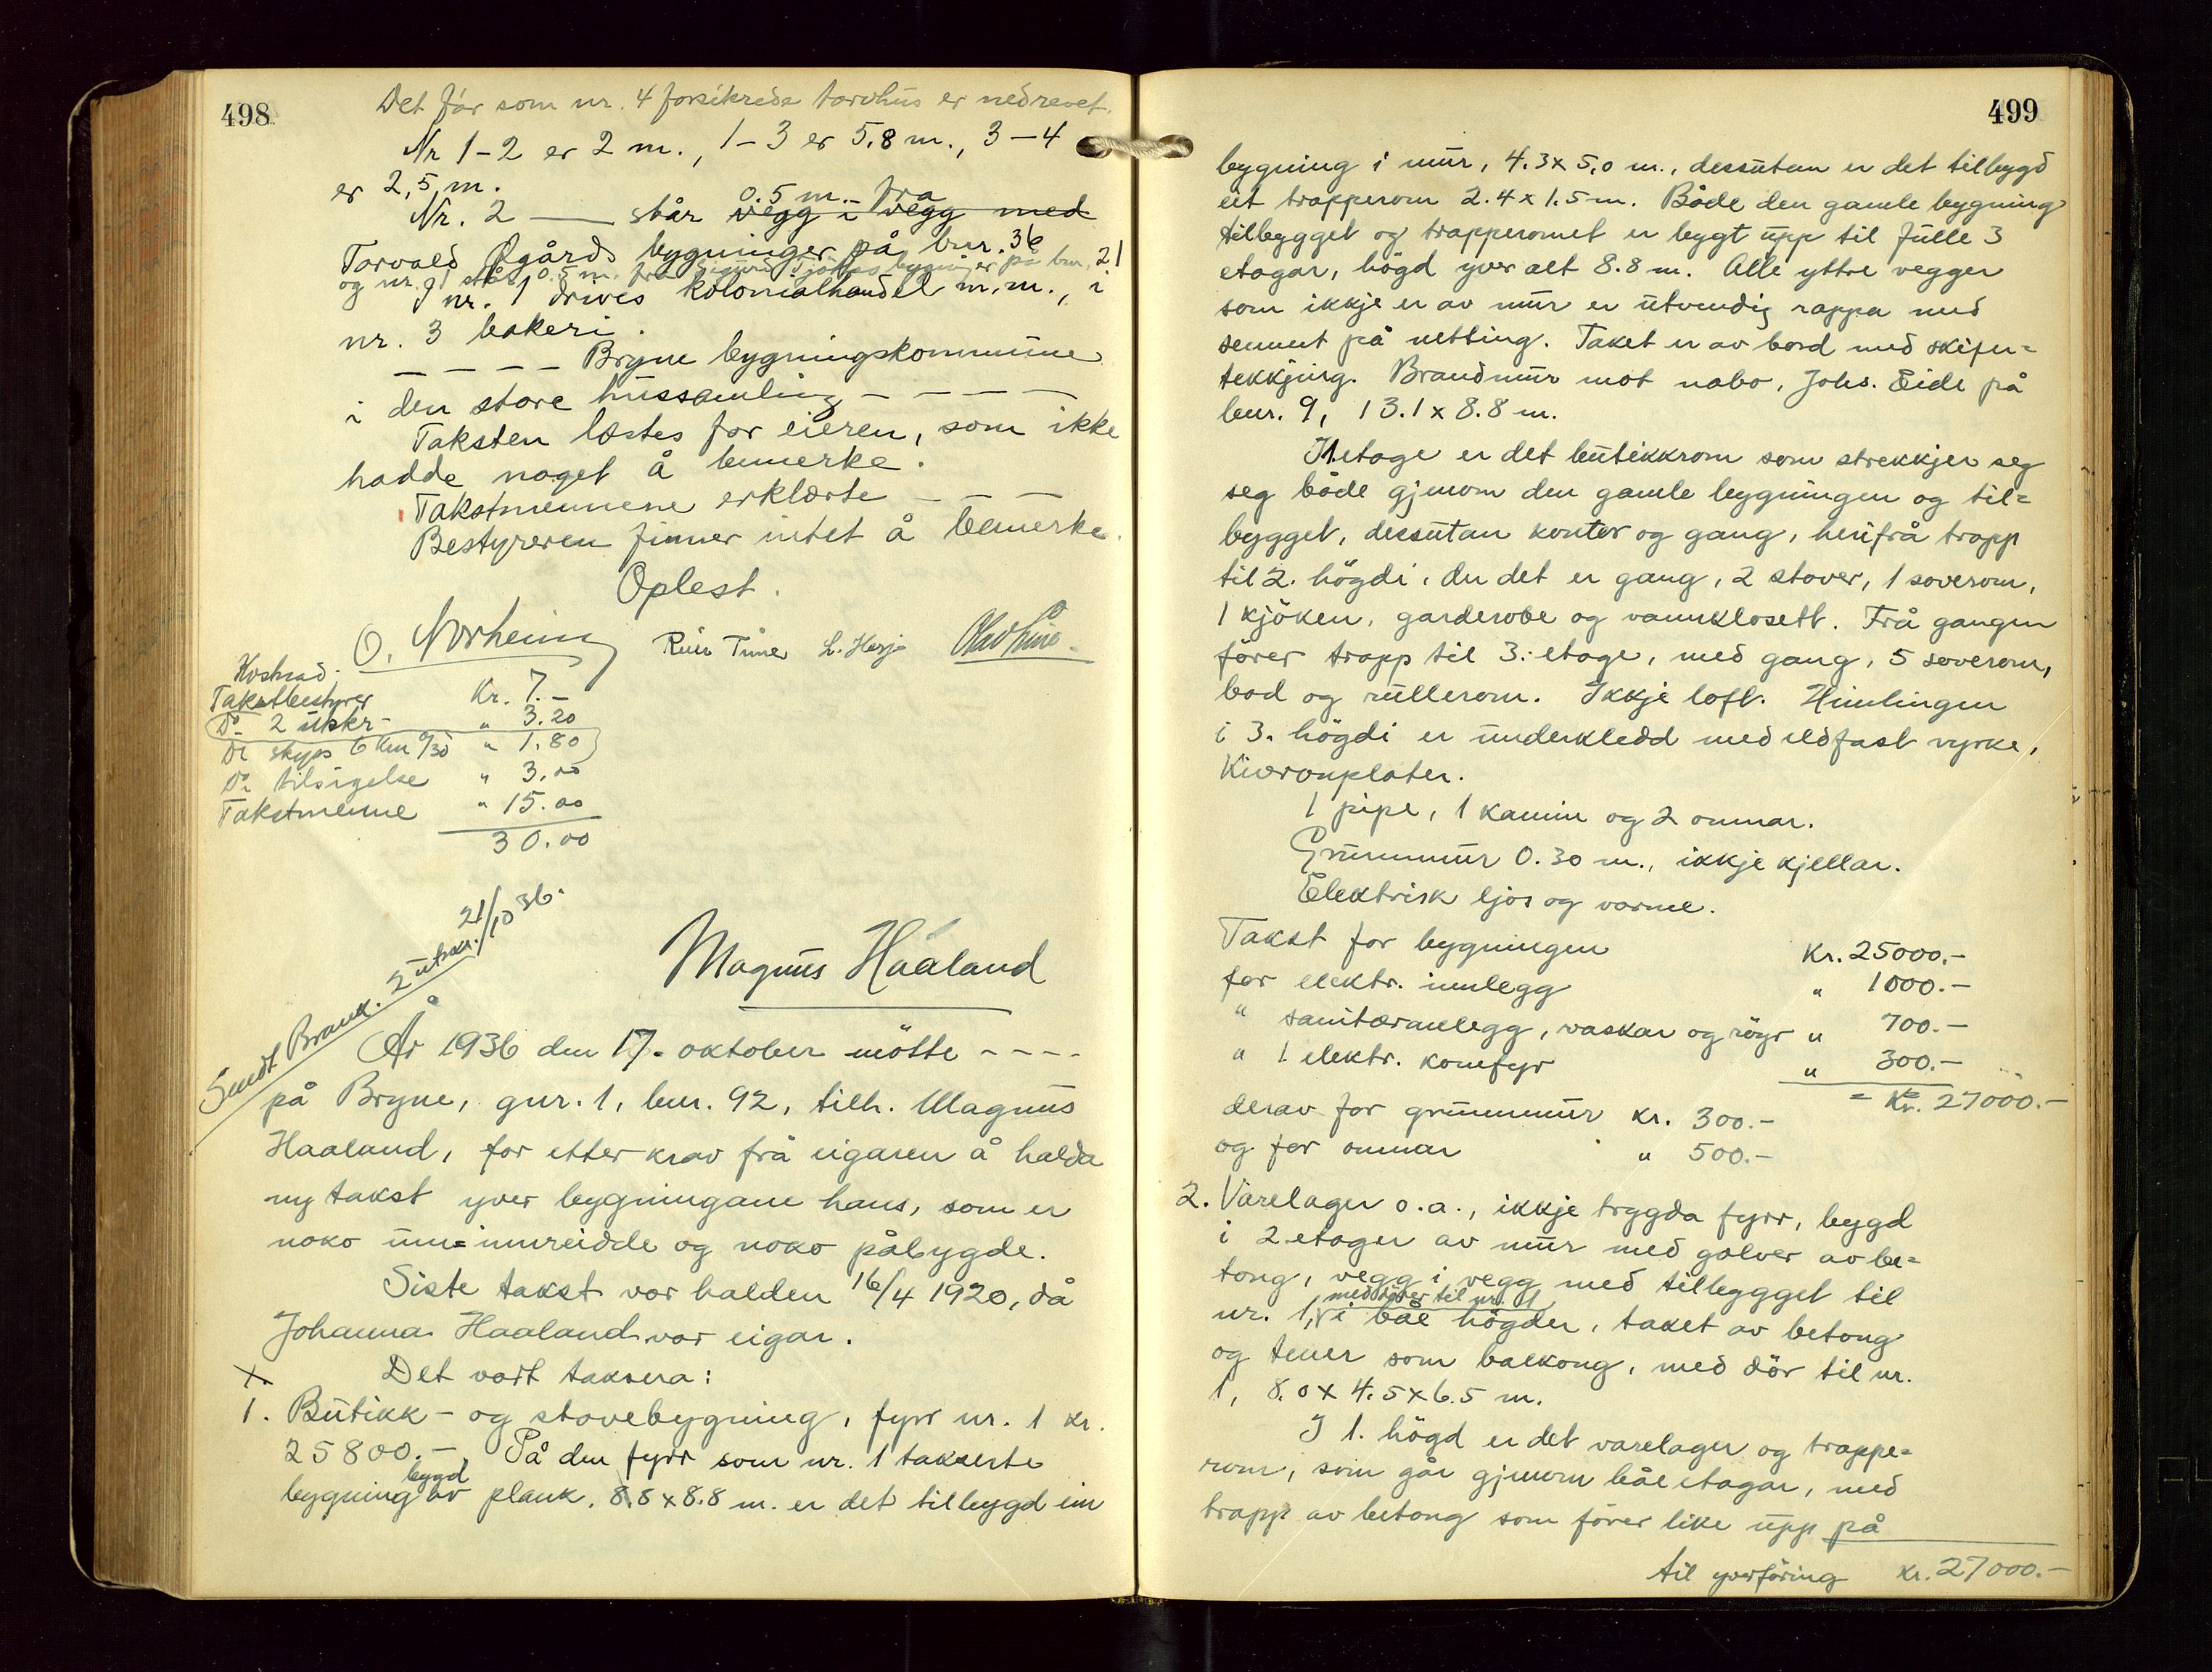 498
Det før som nr. 4 forsikrede torvhus er nedrevet.
Nr 1-2 er 2 m., 1-3 er 5,8 m., 3-4
er 2,5 m.
0.5 m. fra
Nr. 2 —— står vegg i vegg med
Torvald Øgårds bygninger på bnr. 36
og nr. 1 står 0.5 m. fra Sigurd Tjøttas bygninger på bnr. 21
I nr. 1 drives kolonialhandel m.m., i
nr. 3 bakeri.
— — — — Bryne bygningskommune
i den store hussamling — — — —
Taksten læstes for eieren, som ikke
hadde noget å bemerke.
Takstmennene erklærte — — —
Bestyreren finner intet å bemerke.
Oplest.
O. Norheim L. Herjo
Kostnad:
Takstbestyrer Kr. 7.-
Do 2 utskr- " 3.20
Do skyss 6 km á/30 " 1.80
Do tilsigelse " 3.00
Takstmenne " 15.00
30.00
Sendt Brank. 2 utskr. 21/10 36.
Magnus Haaland
År 1936 den 17. oktober møtte - - - -
på Bryne, gnr. 1, bnr. 92, tilh. Magnus
Haaland, for etter krav frå eigaren å halda
ny takst yver bygningane hans, som er
noko um= innreidde og noko påbygde.
Siste takst var halden 16/4 1920, då
Johanna Haaland var eigar.
x Det vart taksera:
1. Butikk- og stovebygning, fyrr nr. 1 kr.
25800.-. På den fyrr som nr. 1 takserte
bygd
bygning av plank, 8.8 x 8.8 m. er det tilbygd ein
499
bygning i mur, 4.3 x 5.0 m., dessutan er det tilbygd
eit trapperom 2.4 x 1.5 m. Både den gamle bygning
tilbygget og trapperomet er bygt upp til fulle 3
etagar, högd yver alt 8.8 m. Alle yttre vegger
som ikkje er av mur er utvendig rappa med
sement på netting. Taket er av bord med skifer=
tekkjing. Brandmur mot nabo, Johs. Eide på
bnr. 9, 13.1 x 8.8 m.
I 1. etage er det butikkrom som strekkjer seg
seg både gjenom den gamle bygningen og til=
bygget, dessutan kontor og gang, herifrå trapp
til 2. högdi, der det er gang, 2 stover, 1 soverom,
1 kjöken, garderobe og vannklosett. Frå gangen
förer trapp til 3. etage, med gang, 5 soverom,
bod og rullerom. Ikkje loft. Himlingen
i 3. högdi er underkledd med eldfast vyrke,
Kieronplater.
1 pipe, 1 kamin og 2 omnar.
Grunnmur 0.30 m., ikkje kjellar.
Elektrisk ljos og varme.
Takst for bygningen Kr. 25000.-
for elektr. innlegg " 1000.-
" sanitæranlegg, vaskar og röyr " 700.-
" 1 elektr. komfyr " 300.-
= Kr. 27000.-
derav for grunnmur kr. 300.-
og for omnar " 500.-
2. Varelager o.a., ikkje trygda fyrr, bygd
i 2 etager av mur med golver av be=
tong, vegg i vegg med tilbygget til
med dører til nr. 1
nr. 1, i båe högder, taket av betong
og tener som balkong, med dör til nr.
1, 8.0 x 4.5 x 6.5 m.
I 1. högd er det varelager og trappe=
rom, som går gjenom båe etagar, med
trapp av betong som förer like upp på
til yverföring kr. 27000.-